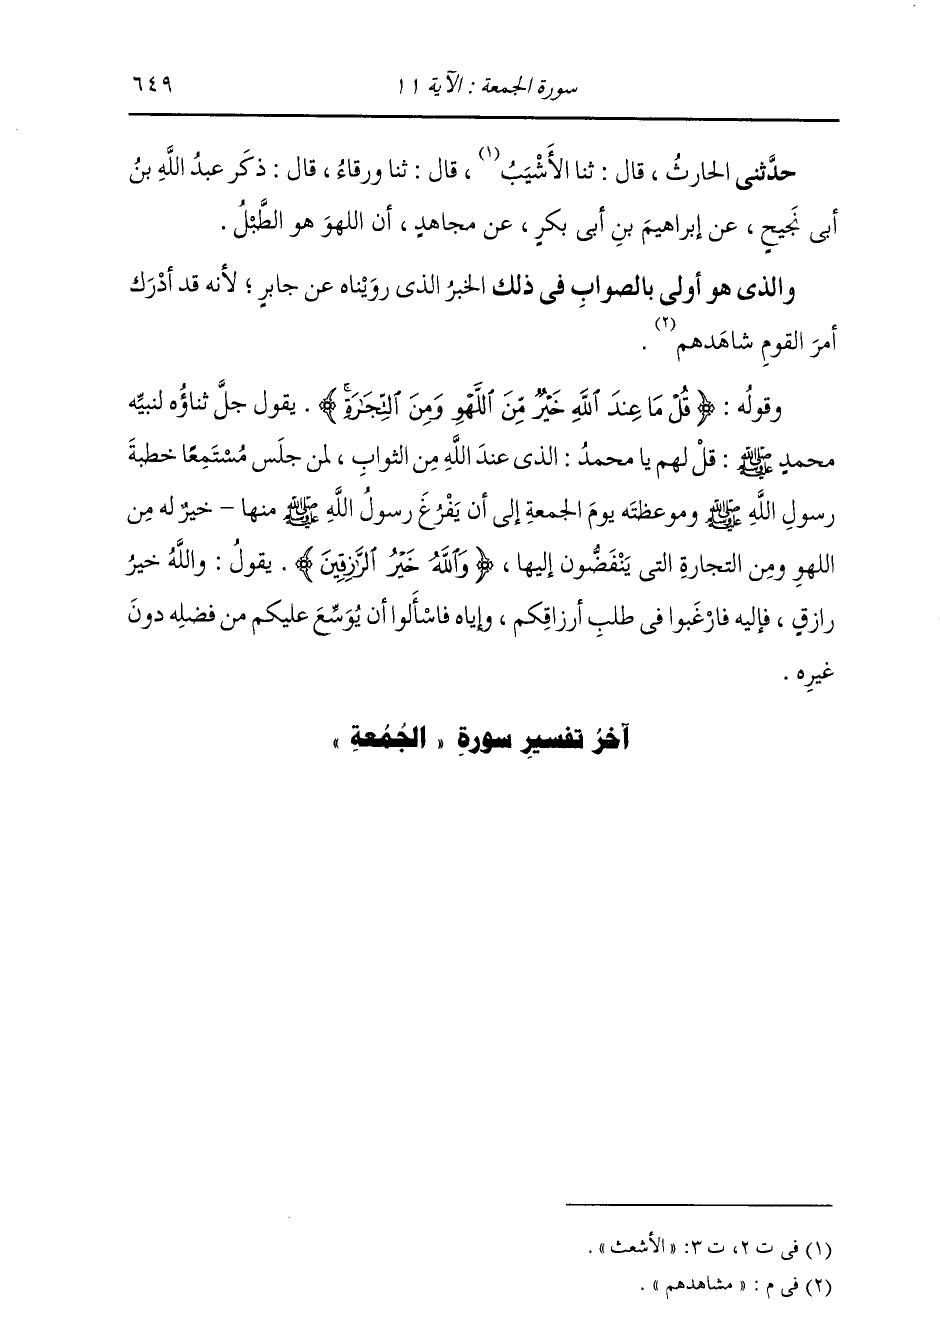 سورة الجمعة : الآية ١١ ٦٤٩
حدَّثنى الحارثُ ، قال : ثنا الأَشْيَبُ(١) ، قال : ثنا ورقاءُ ، قال : ذكَر عبدُ اللَّهِ بنُ
أبى نَجيحٍ ، عن إبراهيمَ بنِ أبى بكرٍ ، عن مجاهدٍ ، أن اللهوَ هو الطَّبْلُ .
والذى هو أولى بالصوابِ فى ذلك الخبرُ الذى روَيْناه عن جابرٍ ؛ لأنه قد أدْرَك
أمرَ القومِ شاهَدهم(٢) .
وقولُه : ﴿ قُلْ مَا عِندَ ٱللَّهِ خَيْرٌ مِّنَ ٱللَّهْوِ وَمِنَ ٱلتِّجَٰرَةِۚ ﴾ . يقول جلَّ ثناؤُه لنبيِّه
محمدٍ ﷺ : قلْ لهم يا محمدُ : الذى عندَ اللَّهِ مِن الثوابِ ، لمن جلَس مُسْتَمِعًا خطبةَ
رسولِ اللَّهِ ﷺ وموعظتَه يومَ الجمعةِ إلى أن يَفْرُغَ رسولُ اللَّهِ ﷺ منها – خيرٌ له مِن
اللهوِ ومِن التجارةِ التى يَنْفَضُّون إليها ، ﴿ وَٱللَّهُ خَيْرُ ٱلرَّٰزِقِينَ ﴾ . يقولُ : واللَّهُ خيرُ
رازقٍ ، فإليه فارْغَبوا فى طلبِ أرزاقِكم ، وإياه فاسْأَلوا أن يُوَسِّعَ عليكم من فضلِه دونَ
غيرِه .
آخرُ تفسيرِ سورةِ « الجُمُعةِ »
(١) فى ت ٢، ت ٣: « الأشعث» .
(٢) فى م : « مشاهدهم » .